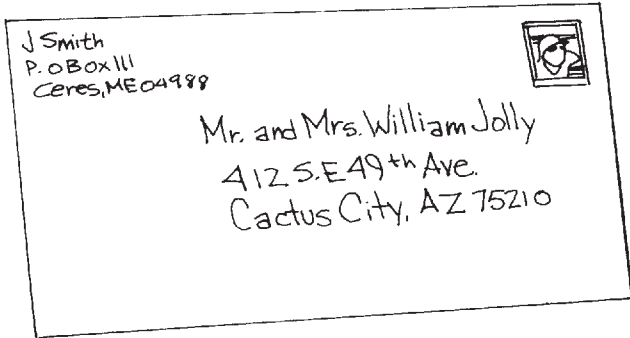 J Smith
P.O Box 111
Ceres, ME 04988
Mr. and Mrs. William Jolly
412 S.E 49th Ave.
Cactus City, AZ 75210